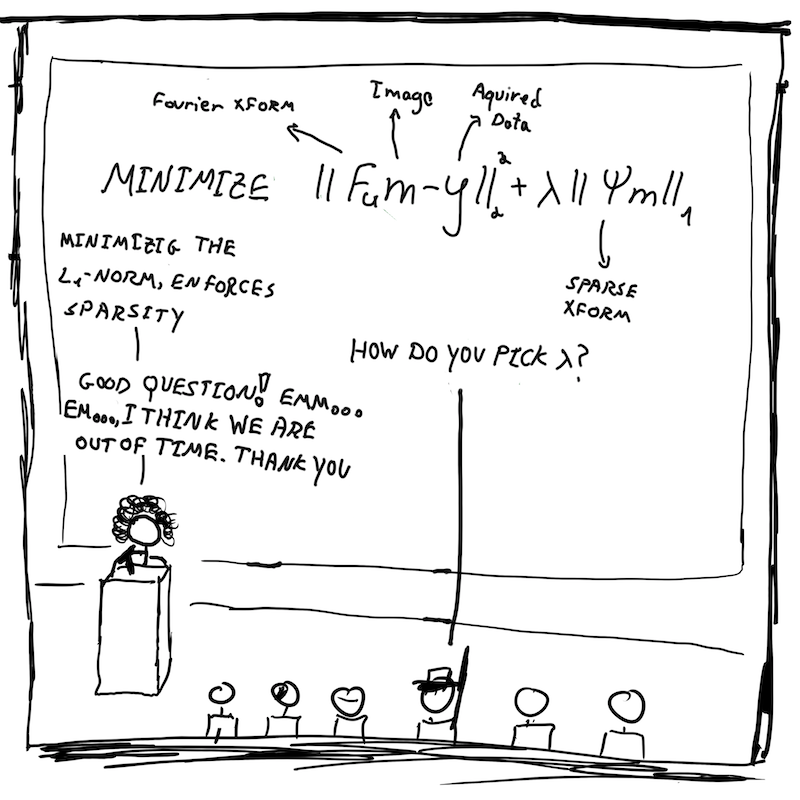 Fourier XFORM
Image
Aquired
Data
MINIMIZE ||Fᵤm-y||₂² + λ||Ψm||₁
SPARSE
XFORM
MINIMIZIG THE
L₁-NORM, ENFORCES
SPARSITY
HOW DO YOU PICK λ?
GOOD QUESTION! EMM...
EM..., I THINK WE ARE
OUT OF TIME. THANK YOU